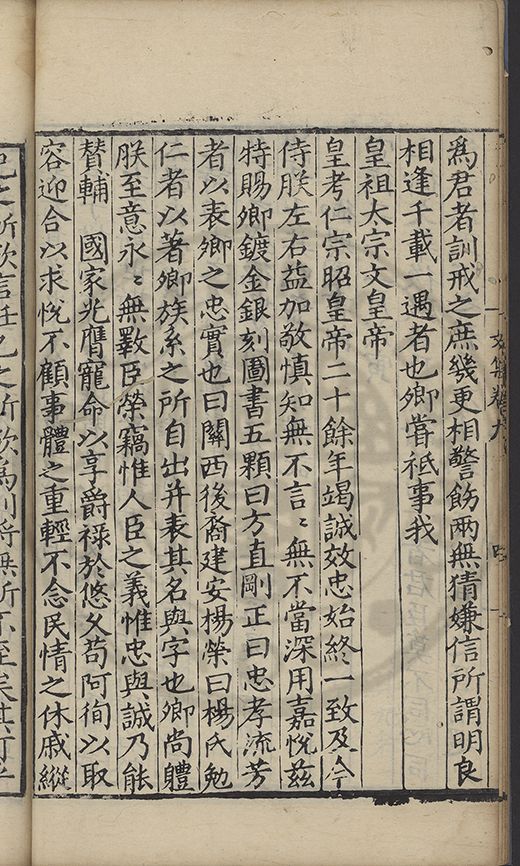 爲君者訓戒之庶幾更相警飭兩無猜嫌信所謂明良
相逢千載一遇者也卿嘗祗事我
皇祖太宗文皇帝
皇考仁宗昭皇帝二十餘年竭誠效忠始終一致及今
侍朕左右益加敬慎知無不言〻無不當深用嘉悅茲
特賜卿鍍金銀刻圖書五顆曰方直剛正曰忠孝流芳
者以表卿之忠實也曰關西後裔建安楊榮曰楊氏勉
仁者以著卿族系之所自出并表其名與字也卿尚體
朕至意永〻無斁臣榮竊惟人臣之義惟忠與誠乃能
賛輔 國家光膺寵命以享爵祿於悠久苟阿徇以取
容迎合以求悅不顧事體之重輕不念民情之休戚縱